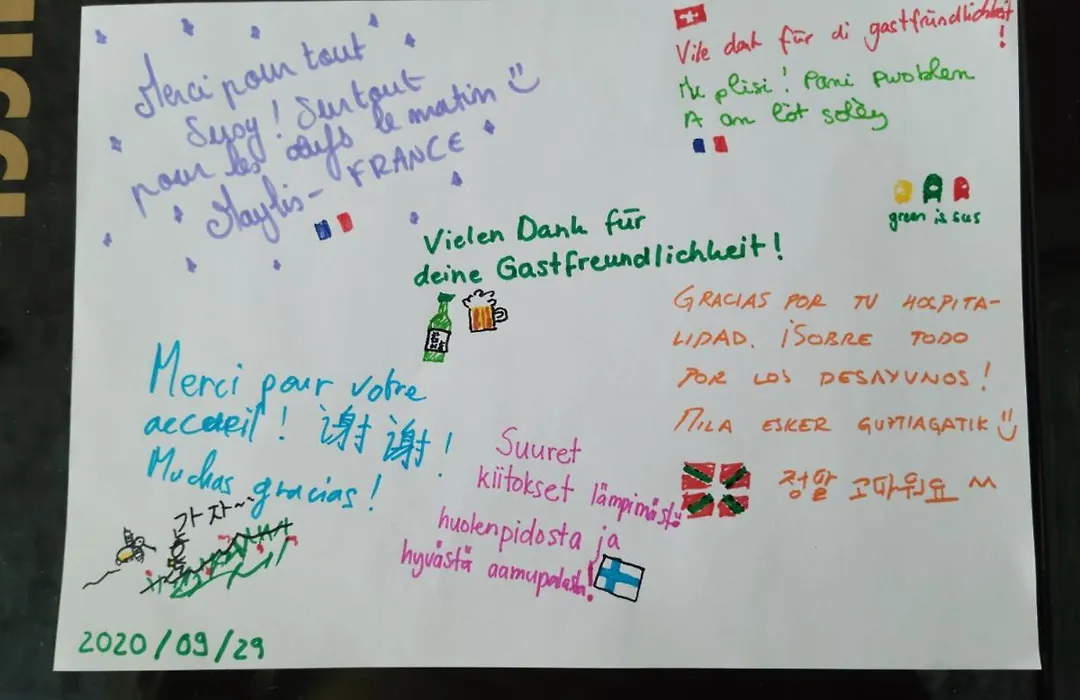 Merci pour tout
Susy! Surtout
pour les œufs le matin
Maylis - FRANCE
Vile dank für di gastfründlichkeit!
Mè plisi! Pani pwoblem
A an lòt solèy
green is sus
Vielen Dank für
deine Gastfreundlichkeit!
GRACIAS POR TU HOSPITA-
LIDAD. ¡SOBRE TODO
POR LOS DESAYUNOS!
MILA ESKER GUZTIAGATIK
정말 고마워요 ^^
Merci pour votre
accueil! 谢谢!
Muchas gracias!
가자~
Suuret
kiitokset lämpimästä
huolenpidosta ja
hyvästä aamupalasta!
2020/09/29